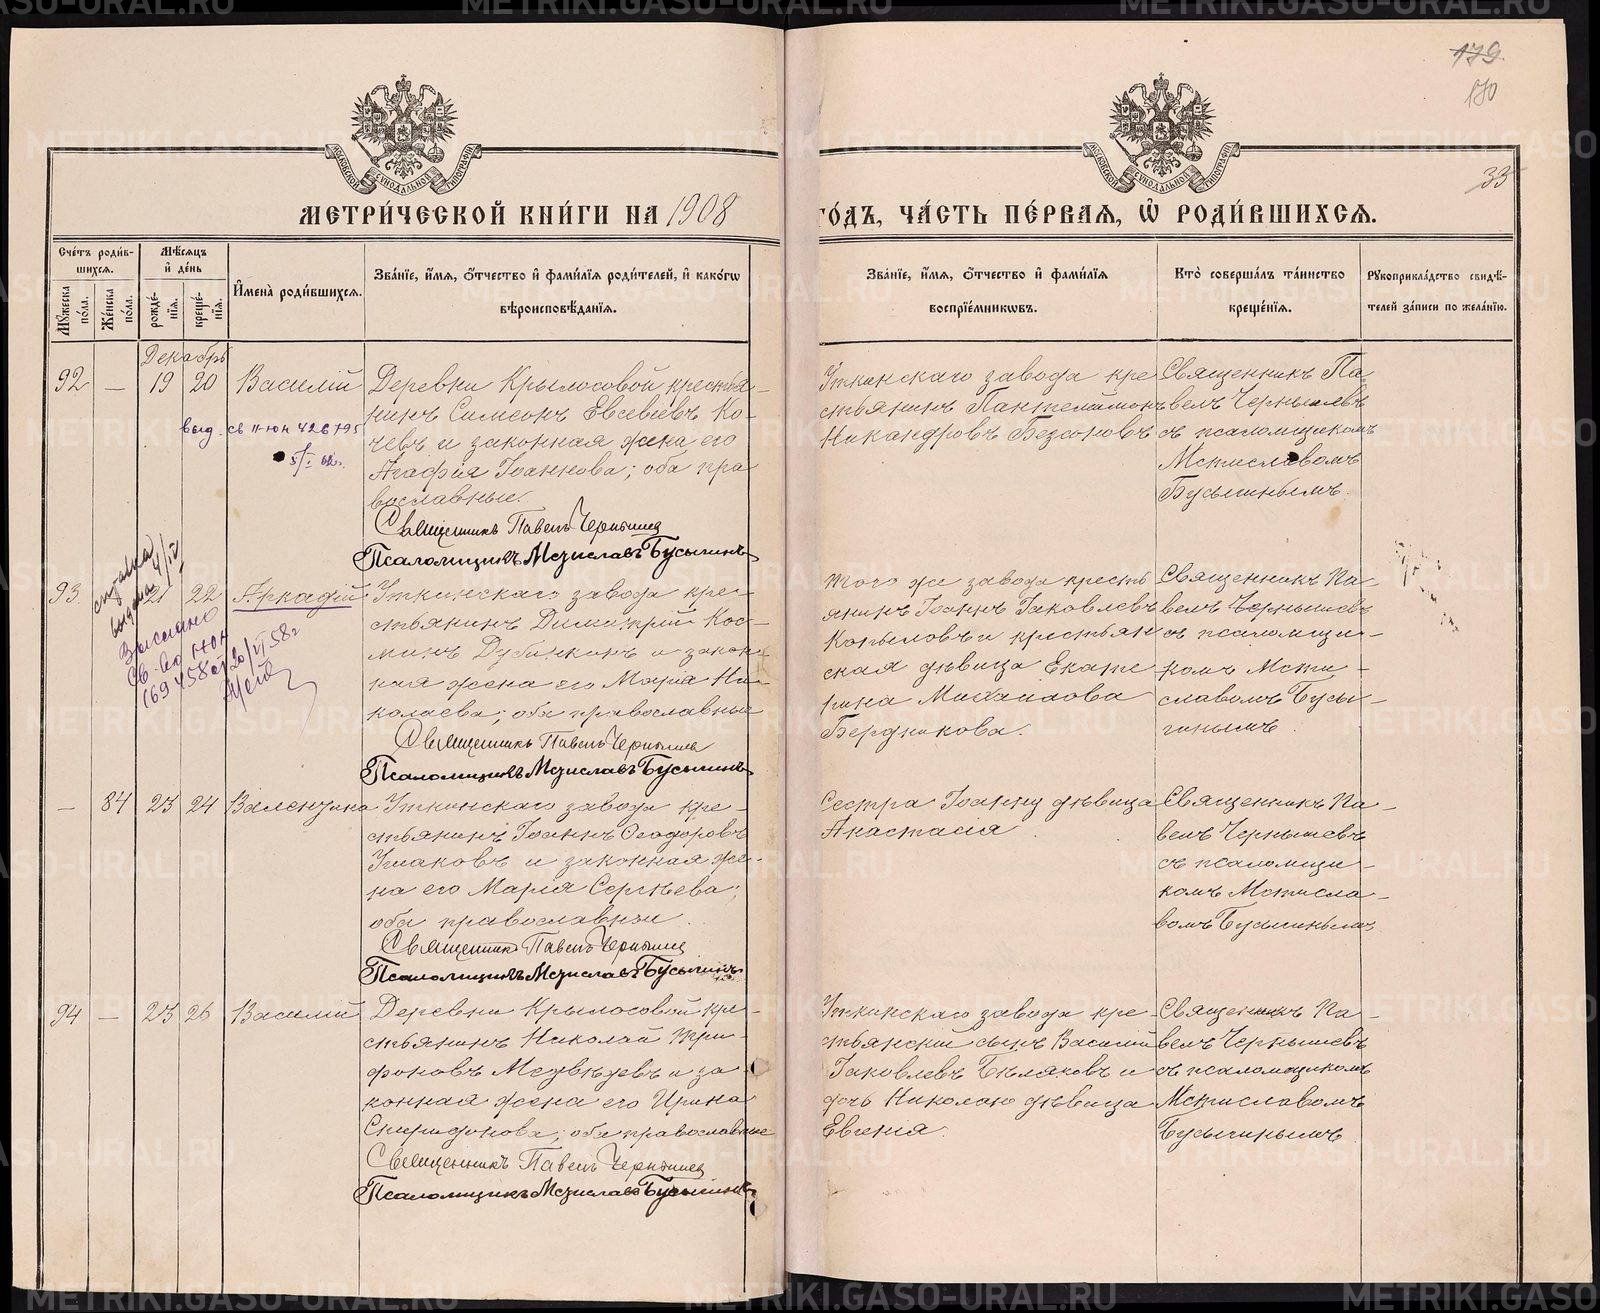 179
170
33
МОСКОВСКОЙ СѴНОДАЛЬНОЙ ТИПОГРАФІИ
МОСКОВСКОЙ СѴНОДАЛЬНОЙ ТИПОГРАФІИ
МЕТРИ́ЧЕСКОЙ КНИ́ГИ НА 1908
ГО́ДЪ, ЧА́СТЬ ПЕ́РВАѦ, Ѡ҆ РОДИ́ВШИХСѦ.
Сче́тъ роди́в-
шихсѧ.
Мꙋ́жеска по́ла.
Же́нска по́ла.
Мѣ́сѧцъ
и҆ де́нь
рожде́-
нїѧ.
креще́-
нїѧ.
И҆мена̀ роди́вшихсѧ.
Зва́нїе, и҆́мѧ, ѻ҆́тчество и҆ фами́лїѧ роди́телей, и҆ како́гѡ
вѣроисповѣ́данїѧ.
Зва́нїе, и҆́мѧ, ѻ҆́тчество и҆ фами́лїѧ
воспрїе́мникѡвъ.
Кто̀ соверша́лъ та́инство
креще́нїѧ.
Рꙋкоприкла́дство свидѣ́-
телей за́писи по жела́нїю.
Декабрь
92 — 19 20 Василій
Деревни Крылосовой крестья-
нинъ Симеонъ Евсевіевъ Ко-
чевъ и законная жена его
Агафія Іоаннова; оба пра
вославные.
Священникъ Павелъ Чернышев
Псаломщикъ Мстиславъ Бусыгинъ
выд. св II-юн 426795
5/I 62.
Уткинскаго завода кре
стьянинъ Пантелеймонъ
Никандровъ Безсоновъ
Священникъ Па
велъ Чернышевъ
съ псаломщикомъ
Мстиславомъ
Бусыгинымъ.
93 21 22 Аркадій
справка
выдана 4/IV
Выслано
Св-во ІЮН
169458 от 20/VI 58г
Уткинскаго завода кре-
стьянинъ Димитрій Кос-
минъ Дубинкинъ и закон-
ная жена его Марія Ни-
колаева; оба православные
Священникъ Павелъ Чернышев
Псаломщикъ Мстиславъ Бусыгинъ
того же завода кресть
янинъ Іоаннъ Іаковлевъ
Копыловъ и крестьян
ская дѣвица Екате
рина Михаилова
Бердникова.
Священникъ Па-
велъ Чернышевъ
съ псаломщи-
комъ Мсти-
славомъ Бусы-
гинымъ.
— 84 23 24 Валентина
Уткинскаго завода кре-
стьянинъ Іоаннъ Ѳеодоровъ
Ушаковъ и законная же-
на его Марія Сергѣева;
оба православные.
Священникъ Павелъ Чернышев
Псаломщикъ Мстиславъ Бусыгинъ
Сестра Іоанну дѣвица
Анастасія.
Священникъ Па-
велъ Чернышевъ
съ псаломщи-
комъ Мстисла-
вомъ Бусыгинымъ
94 — 23 26 Василій
Деревни Крылосовой кре-
стьянинъ Николай Три-
фоновъ Медвѣдевъ и за-
конная жена его Ирина
Спиридонова; оба православные
Священникъ Павелъ Чернышев
Псаломщикъ Мстиславъ Бусыгинъ
Уткинскаго завода кре
стьянскій сынъ Василій
Іаковлевъ Бѣляковъ и
дочь Николаю дѣвица
Евгенія.
Священникъ Па-
велъ Чернышевъ
съ псаломщикомъ
Мстиславомъ
Бусыгинымъ
METRIKI.GASO-URAL.RU